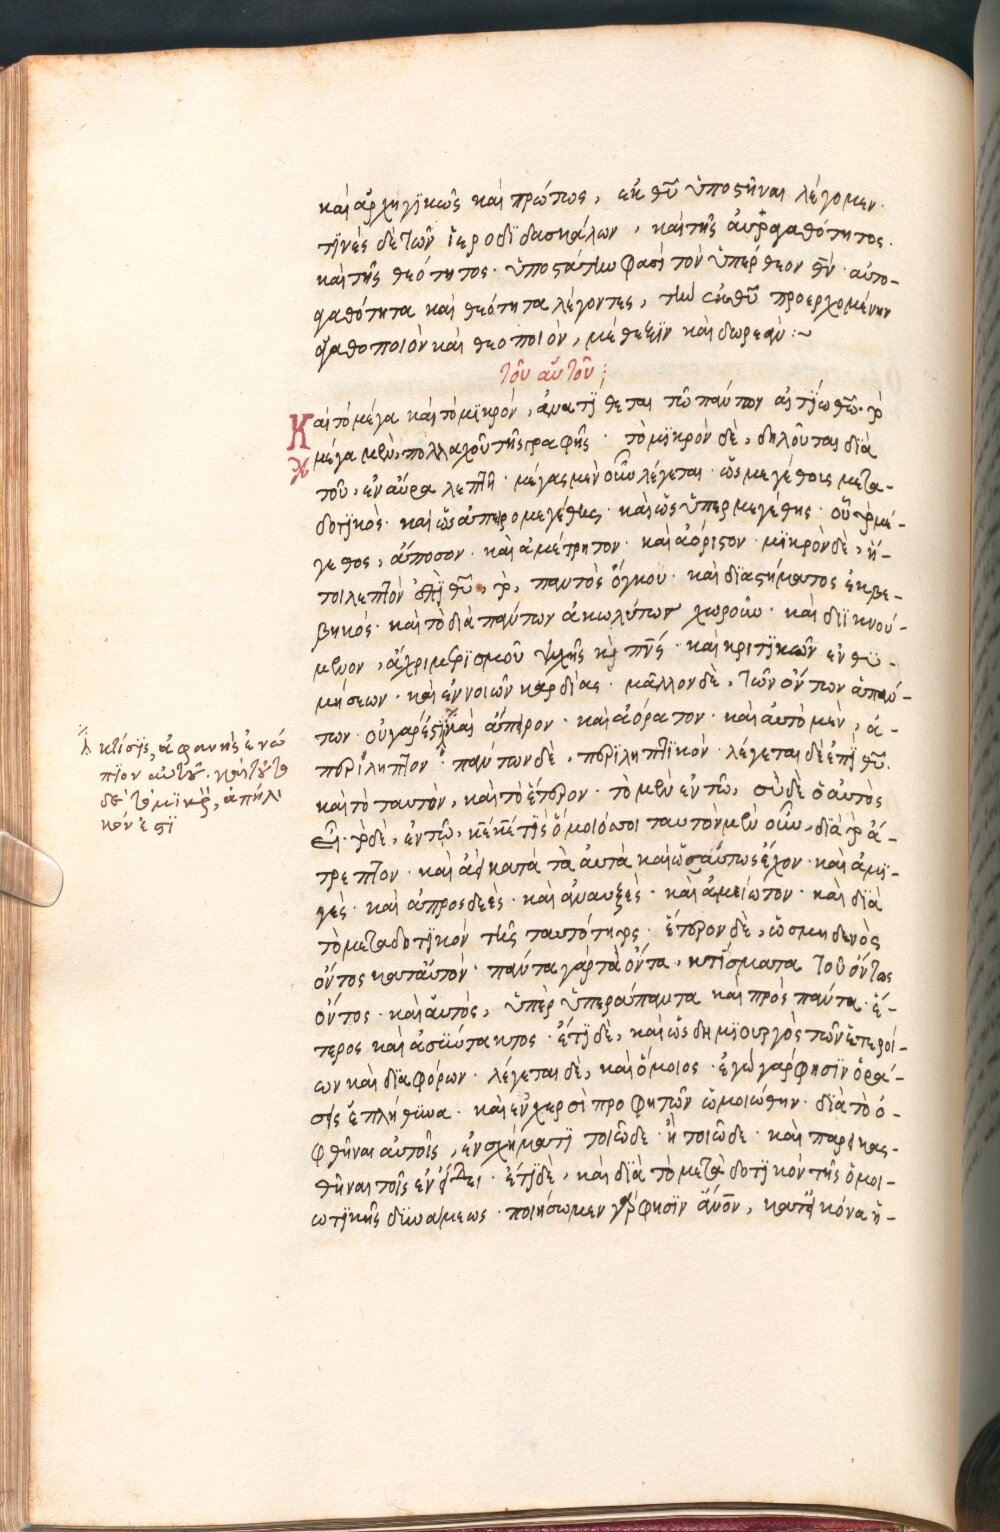 καὶ ἀρχηγϊκῶς καὶ πρώτως, ἐκ θῦ ὑποστῆναι λέγομεν·
τϊνὲς δὲ τῶν ἱεροδϊδασκάλων, καὶ τῆς αὐτοαγαθότητος·
καὶ τῆς θεότητος· ὑποστάτην φασὶ τὸν ὑπέρθεον θν· αὐτο-
αγαθότητα καὶ θεότητα λέγοντες, τὴν ἐκ θῦ προερχομένην
ἀγαθοποιὸν καὶ θεοποιὸν, μέθεξϊν καὶ δωρεὰν :~
τοῦ αὐτοῦ ;
Καὶ τὸ μέγα καὶ τὸ μϊκρόν, ἀνατΐθεται τῶ πάντων αἰτΐω θῶ· τὸ
μέγα μὲν, πολλαχοῦ τῆς γραφῆς· τὸ μϊκρὸν δὲ, δηλοῦται δϊὰ
τοῦ, ἐν αὔρα λεπτῆ· μέγας μὲν οὖν λέγεται· ὡς μεγέθους μετα-
δοτϊκὸς· καὶ ὡς ἀπειρομεγέθης· καὶ ὡς ὑπερμεγέθης· οὗ τὸ μέ-
γεθος, ἄποσον· καὶ ἀμέτρητον· καὶ ἀόριστον· μϊκρὸν δὲ, ἤ-
τοι λεπτὸν ἐπὶ θῦ, τὸ, παντὸς ὄγκου· καὶ δϊαστήματος ἐκβε-
βηκὸς· καὶ τὸ διὰ πάντων ἀκωλύτως χωροῦν· καὶ δϊϊκνού-
μενον, ἄχρι μερϊσμοῦ ψυχῆς κὶ πνς· καὶ κριτϊκῶν ἐνθυ-
μήσεων· καὶ ἐννοιῶν καρδίας· μᾶλλον δὲ, τῶν ὄντων ἁπάν-
των· οὐ γὰρ ἐστϊ καὶ ἄπειρον· καὶ ἀόρατον· καὶ αὐτὸ μὲν, ἀ-
περίληπτον· πάντων δὲ, περϊληπτϊκὸν· λέγεται δὲ ἐπὶ θῦ·
καὶ τὸ ταυτὸν, καὶ τὸ ἕτερον· τὸ μὲν ἐν τῶ, σὺ δὲ ὁ αὐτὸς
εἶ· τὸ δὲ, ἐν τῶ, ὁμοιώσει ταυτὸν μὲν οὖν, διὰ τὸ ἄ-
τρεπτον· καὶ ἀεὶ κατὰ τὰ αὐτὰ καὶ ὡσαύτως ἔχον· καὶ ἀμϊ-
γὲς· καὶ ἀπροσδεὲς· καὶ ἀναυξὲς· καὶ ἀμείωτον· καὶ δϊὰ
τὸ μεταδοτϊκὸν τῆς ταυτότητος· ἕτερον δὲ, ὡς μηδενὸς
ὄντος κατ' αὐτὸν· πάντα γὰρ τὰ ὄντα, κτίσματα τοῦ ὄντως
ὄντος· καὶ αὐτὸς, ὑπὲρ ὑπεράπαντα καὶ πρὸς πάντα· ἕ-
τερος καὶ ἀσύντακτος· ἔτϊ δὲ, καὶ ὡς δημϊουργὸς τῶν ἑτεροί-
ων καὶ δϊαφόρων· λέγεται δὲ, καὶ ὅμοιος· ἐγὼ γάρ φησϊν ὁρά-
σεις ἐπλήθυνα· καὶ ἐν χερσὶ προφητῶν ὡμοιώθην· δϊὰ τὸ ὀ-
φθῆναι αὐτοῖς, ἐν σχήματϊ τοιῶδε· ἢ τοιῶδε· καὶ παρεικας-
θῆναι τοῖς ἐν εἴδει· ἔτϊ δὲ, καὶ δϊὰ τὸ μεταδοτϊκὸν τῆς ὁμοι-
ωτϊκῆς δϋνάμεως· ποιήσωμεν γάρ φησϊν ἄνον, κατ' εἰκόνα ἡ-
κτίσϊς, ἀφανὴς ἐνώ
πϊον αὐτοῦ·